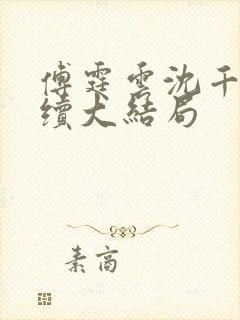 傅霆雲沈千
續大結局
素高